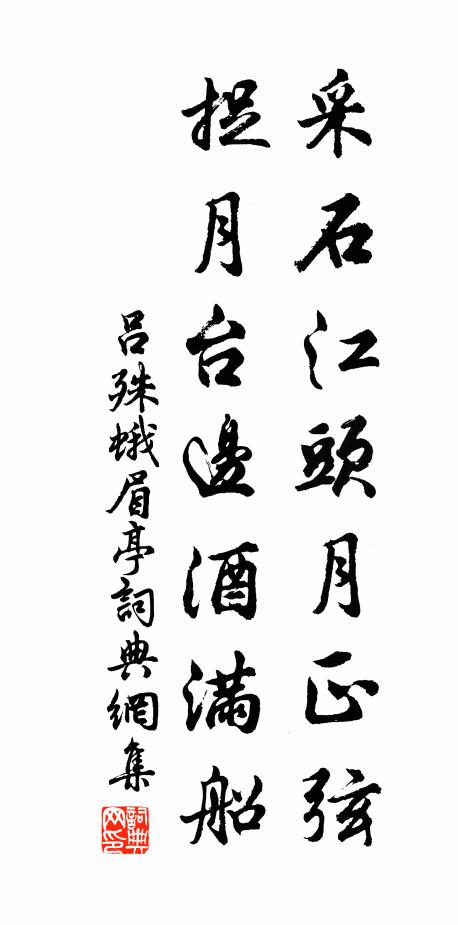 采石江頭月正弦
捉月台邊酒滿船
呂殊蛾眉亭詞典網集
詞典網印